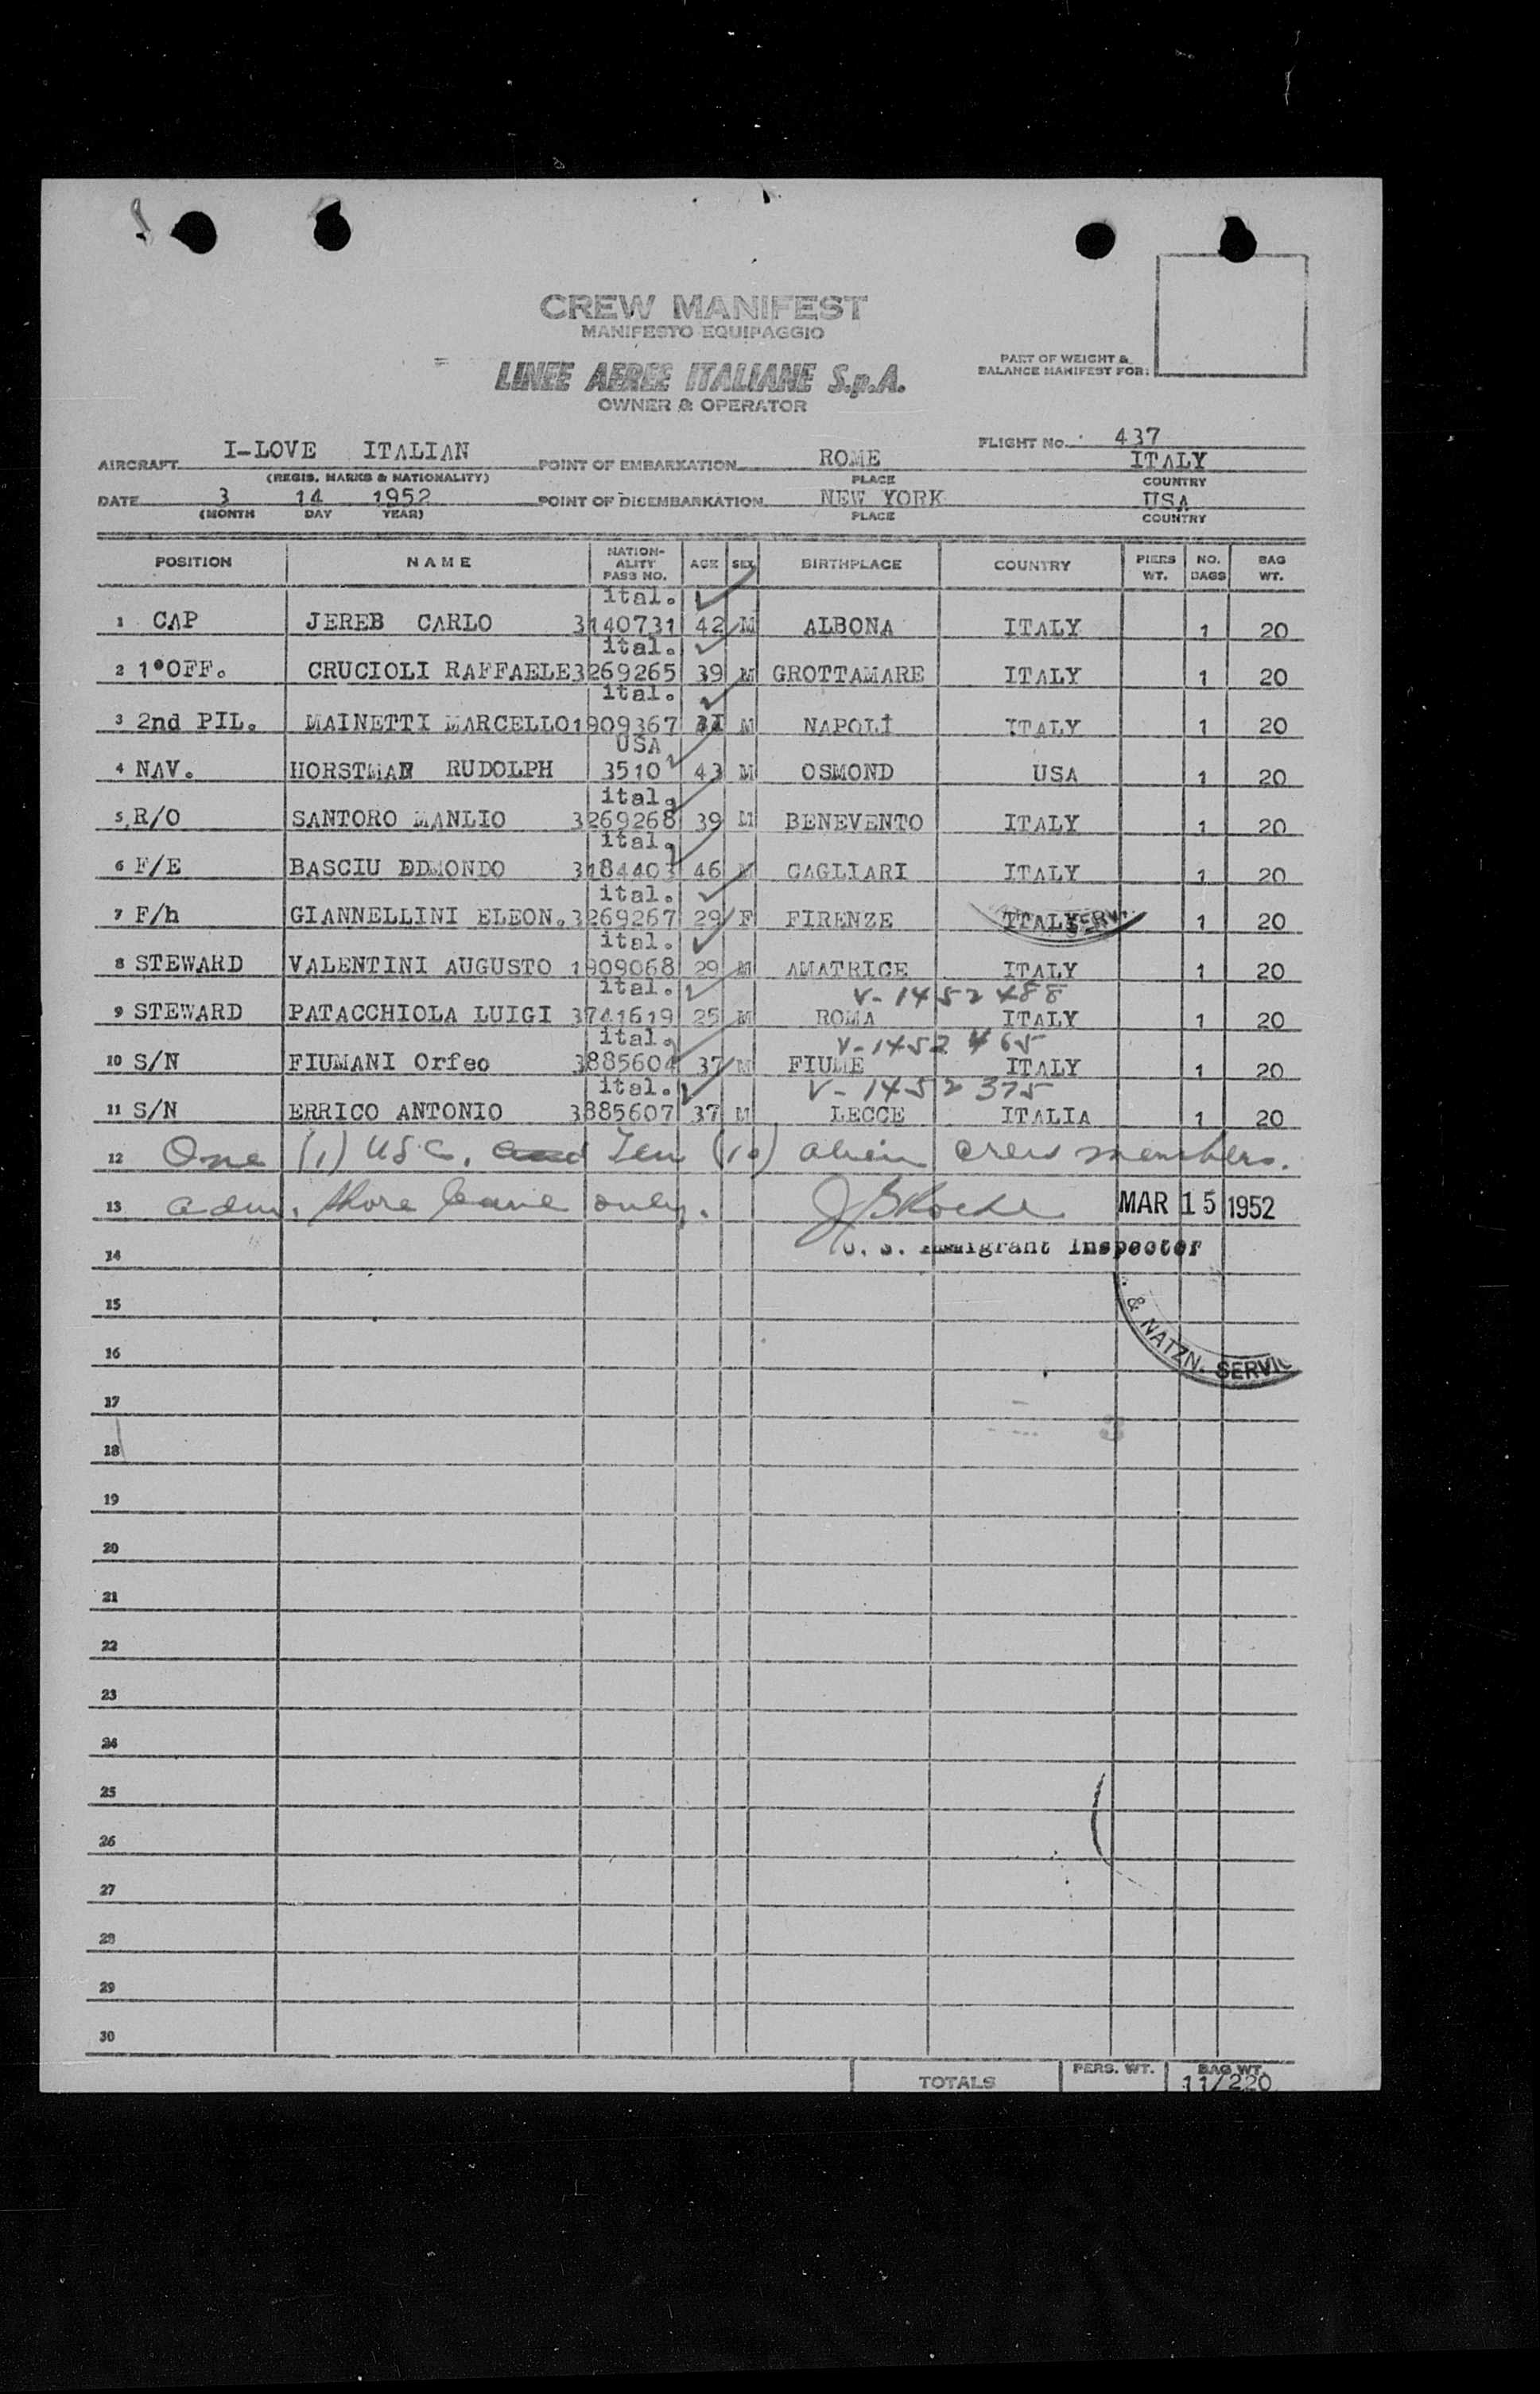 CREW MANIFEST
MANIFESTO EQUIPAGGIO
LINEE AEREE ITALIANE S.p.A.
OWNER & OPERATOR
PART OF WEIGHT &
BALANCE MANIFEST FOR:
FLIGHT No. 437
AIRCRAFT I-LOVE ITALIAN POINT OF EMBARKATION ROME ITALY
(REGIS. MARKS & NATIONALITY) PLACE COUNTRY
DATE 3 14 1952 POINT OF DISEMBARKATION NEW YORK USA
(MONTH DAY YEAR) PLACE COUNTRY
POSITION NAME NATION-ALITY PASS NO. AGE SEX BIRTHPLACE COUNTRY PIERS WT. NO. BAGS BAG WT.
ital.
1 CAP JEREB CARLO 3140731 42 M ALBONA ITALY 1 20
ital.
2 1°OFF. CRUCIOLI RAFFAELE 3269265 39 M GROTTAMARE ITALY 1 20
ital.
3 2nd PIL. MAINETTI MARCELLO 1909367 M NAPOLI ITALY 1 20
USA
4 NAV. HORSTMAN RUDOLPH 3510 43 M OSMOND USA 1 20
ital.
5 R/O SANTORO MANLIO 3269268 39 M BENEVENTO ITALY 1 20
ital.
6 F/E BASCIU EDMONDO 3184403 46 M CAGLIARI ITALY 1 20
ital.
7 F/h GIANNELLINI ELEON. 3269267 29 F FIRENZE ITALY 1 20
SERV.
ital.
8 STEWARD VALENTINI AUGUSTO 1909068 29 M AMATRICE ITALY 1 20
ital. V-1452488
9 STEWARD PATACCHIOLA LUIGI 3741619 25 M ROMA ITALY 1 20
ital. V-1452465
10 S/N FIUMANI Orfeo 3885604 37 M FIUME ITALY 1 20
ital. V-1452375
11 S/N ERRICO ANTONIO 3885607 37 M LECCE ITALIA 1 20
12 One (1) USC. and Ten (10) alien crew members.
13 adm. shore leave only. MAR 15 1952
14 U. S. Immigrant Inspector
15
& NATZN. SERVIC
16
17
18
19
20
21
22
23
24
25
26
27
28
29
30
TOTALS PERS. WT. BAG WT.
11/220